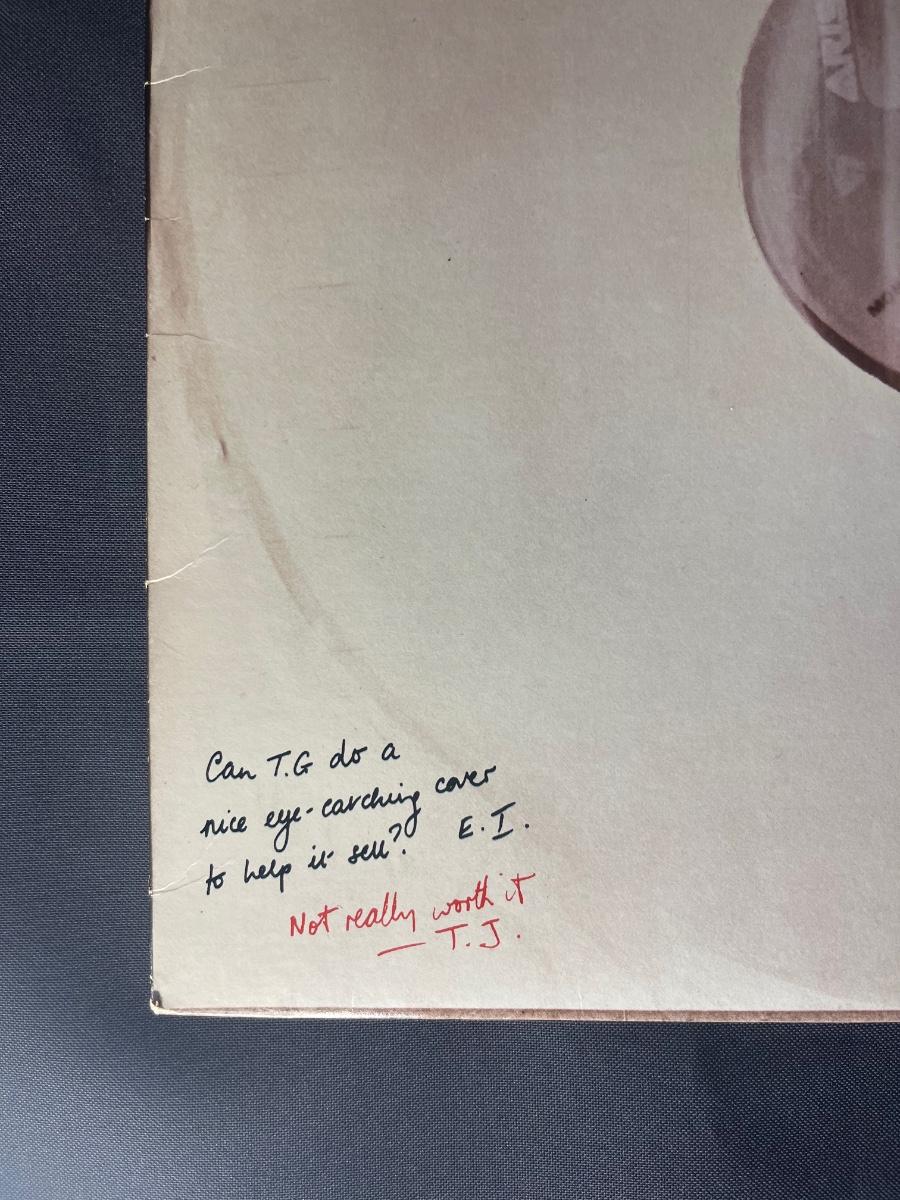 Can T.G do a
nice eye-catching cover
to help it sell? E.I.
Not really worth it
— T.J.